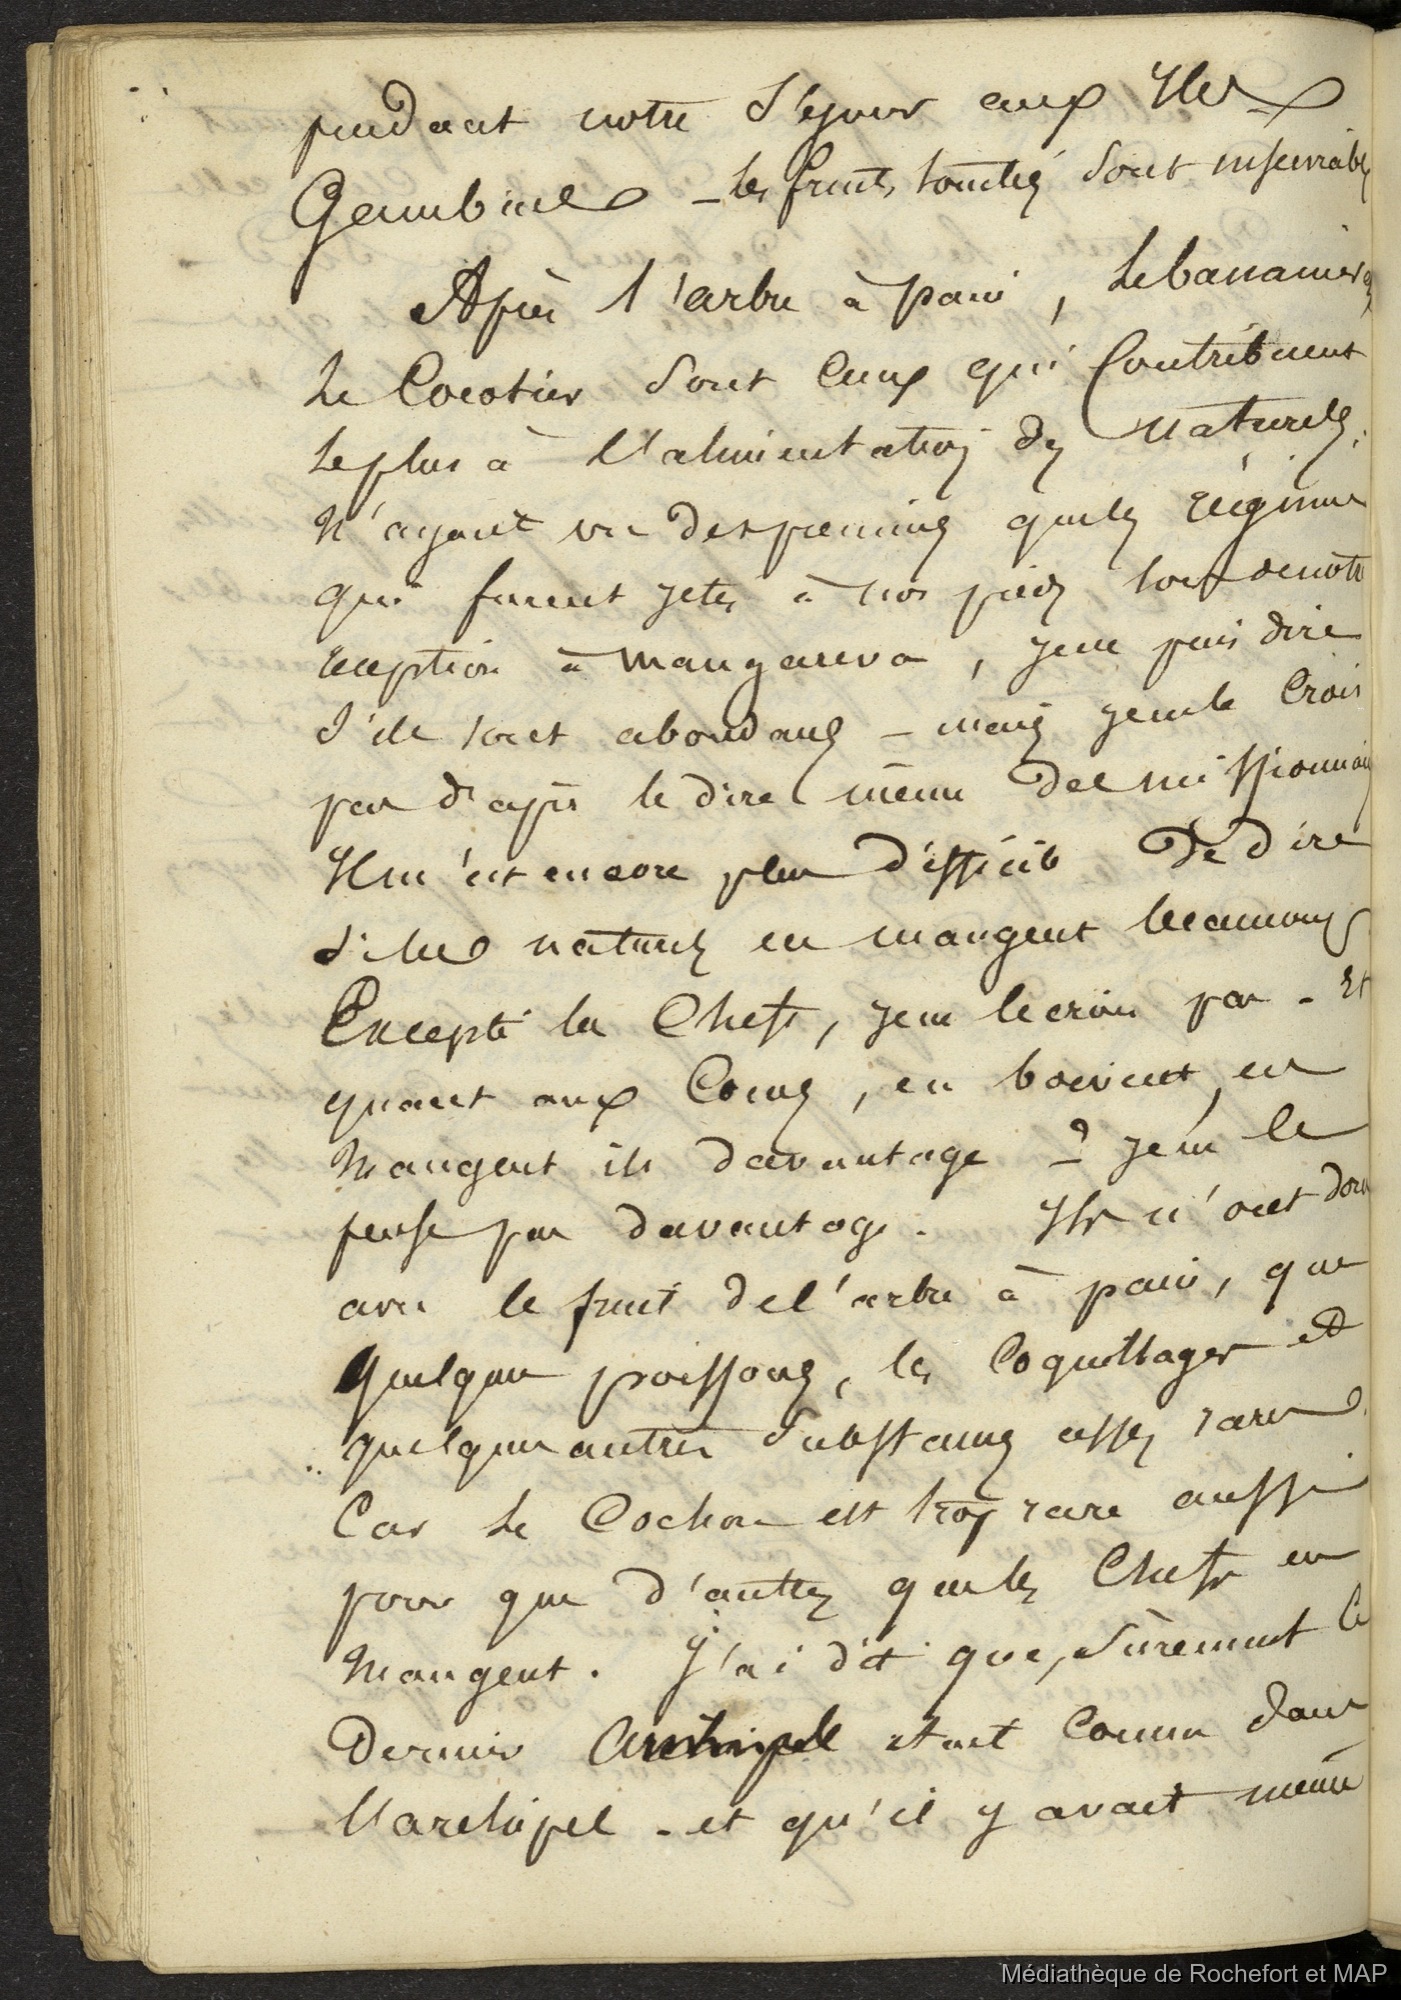 pendant notre séjour aux Iles
Gambier _ les fruits tombés sont
Après l'arbre à pain, le bananier et
le Cocotier sont ceux qui Contribuent
le plus à l'alimentation des naturels.
N'ayant vu des premiers que les régimes
qui furent jetés à nos pieds lors de notre
réception à Mangareva, je ne puis dire
s'ils sont abondants _ mais je ne le Crois
pas d'après le dire même des missionnaires
Il m'est encore plus difficile De dire
si les naturels en mangent beaucoup
Excepté les Chefs, je ne le crois pas - Et
quant aux Cocos, en boivent, en
Mangent ils davantage ? je ne le
pense pas davantage. Ils n'ont donc
avec le fruit de l'arbre à pain, que
quelques poissons, les Coquillages et
quelques autres substances assez rares
Car le Cochon est trop rare aussi
pour que d'autres que les Chefs en
Mangent. J'ai dit que, sûrement ce
Dernier était Connu dans
l'archipel - et qu'il y avait même
Médiathèque de Rochefort et MAP